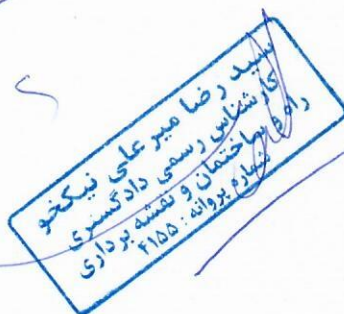 سید رضا میر علی نیکخو
کارشناس رسمی دادگستری
راه و ساختمان و نقشه برداری
شماره پروانه: ۴۱۵۵